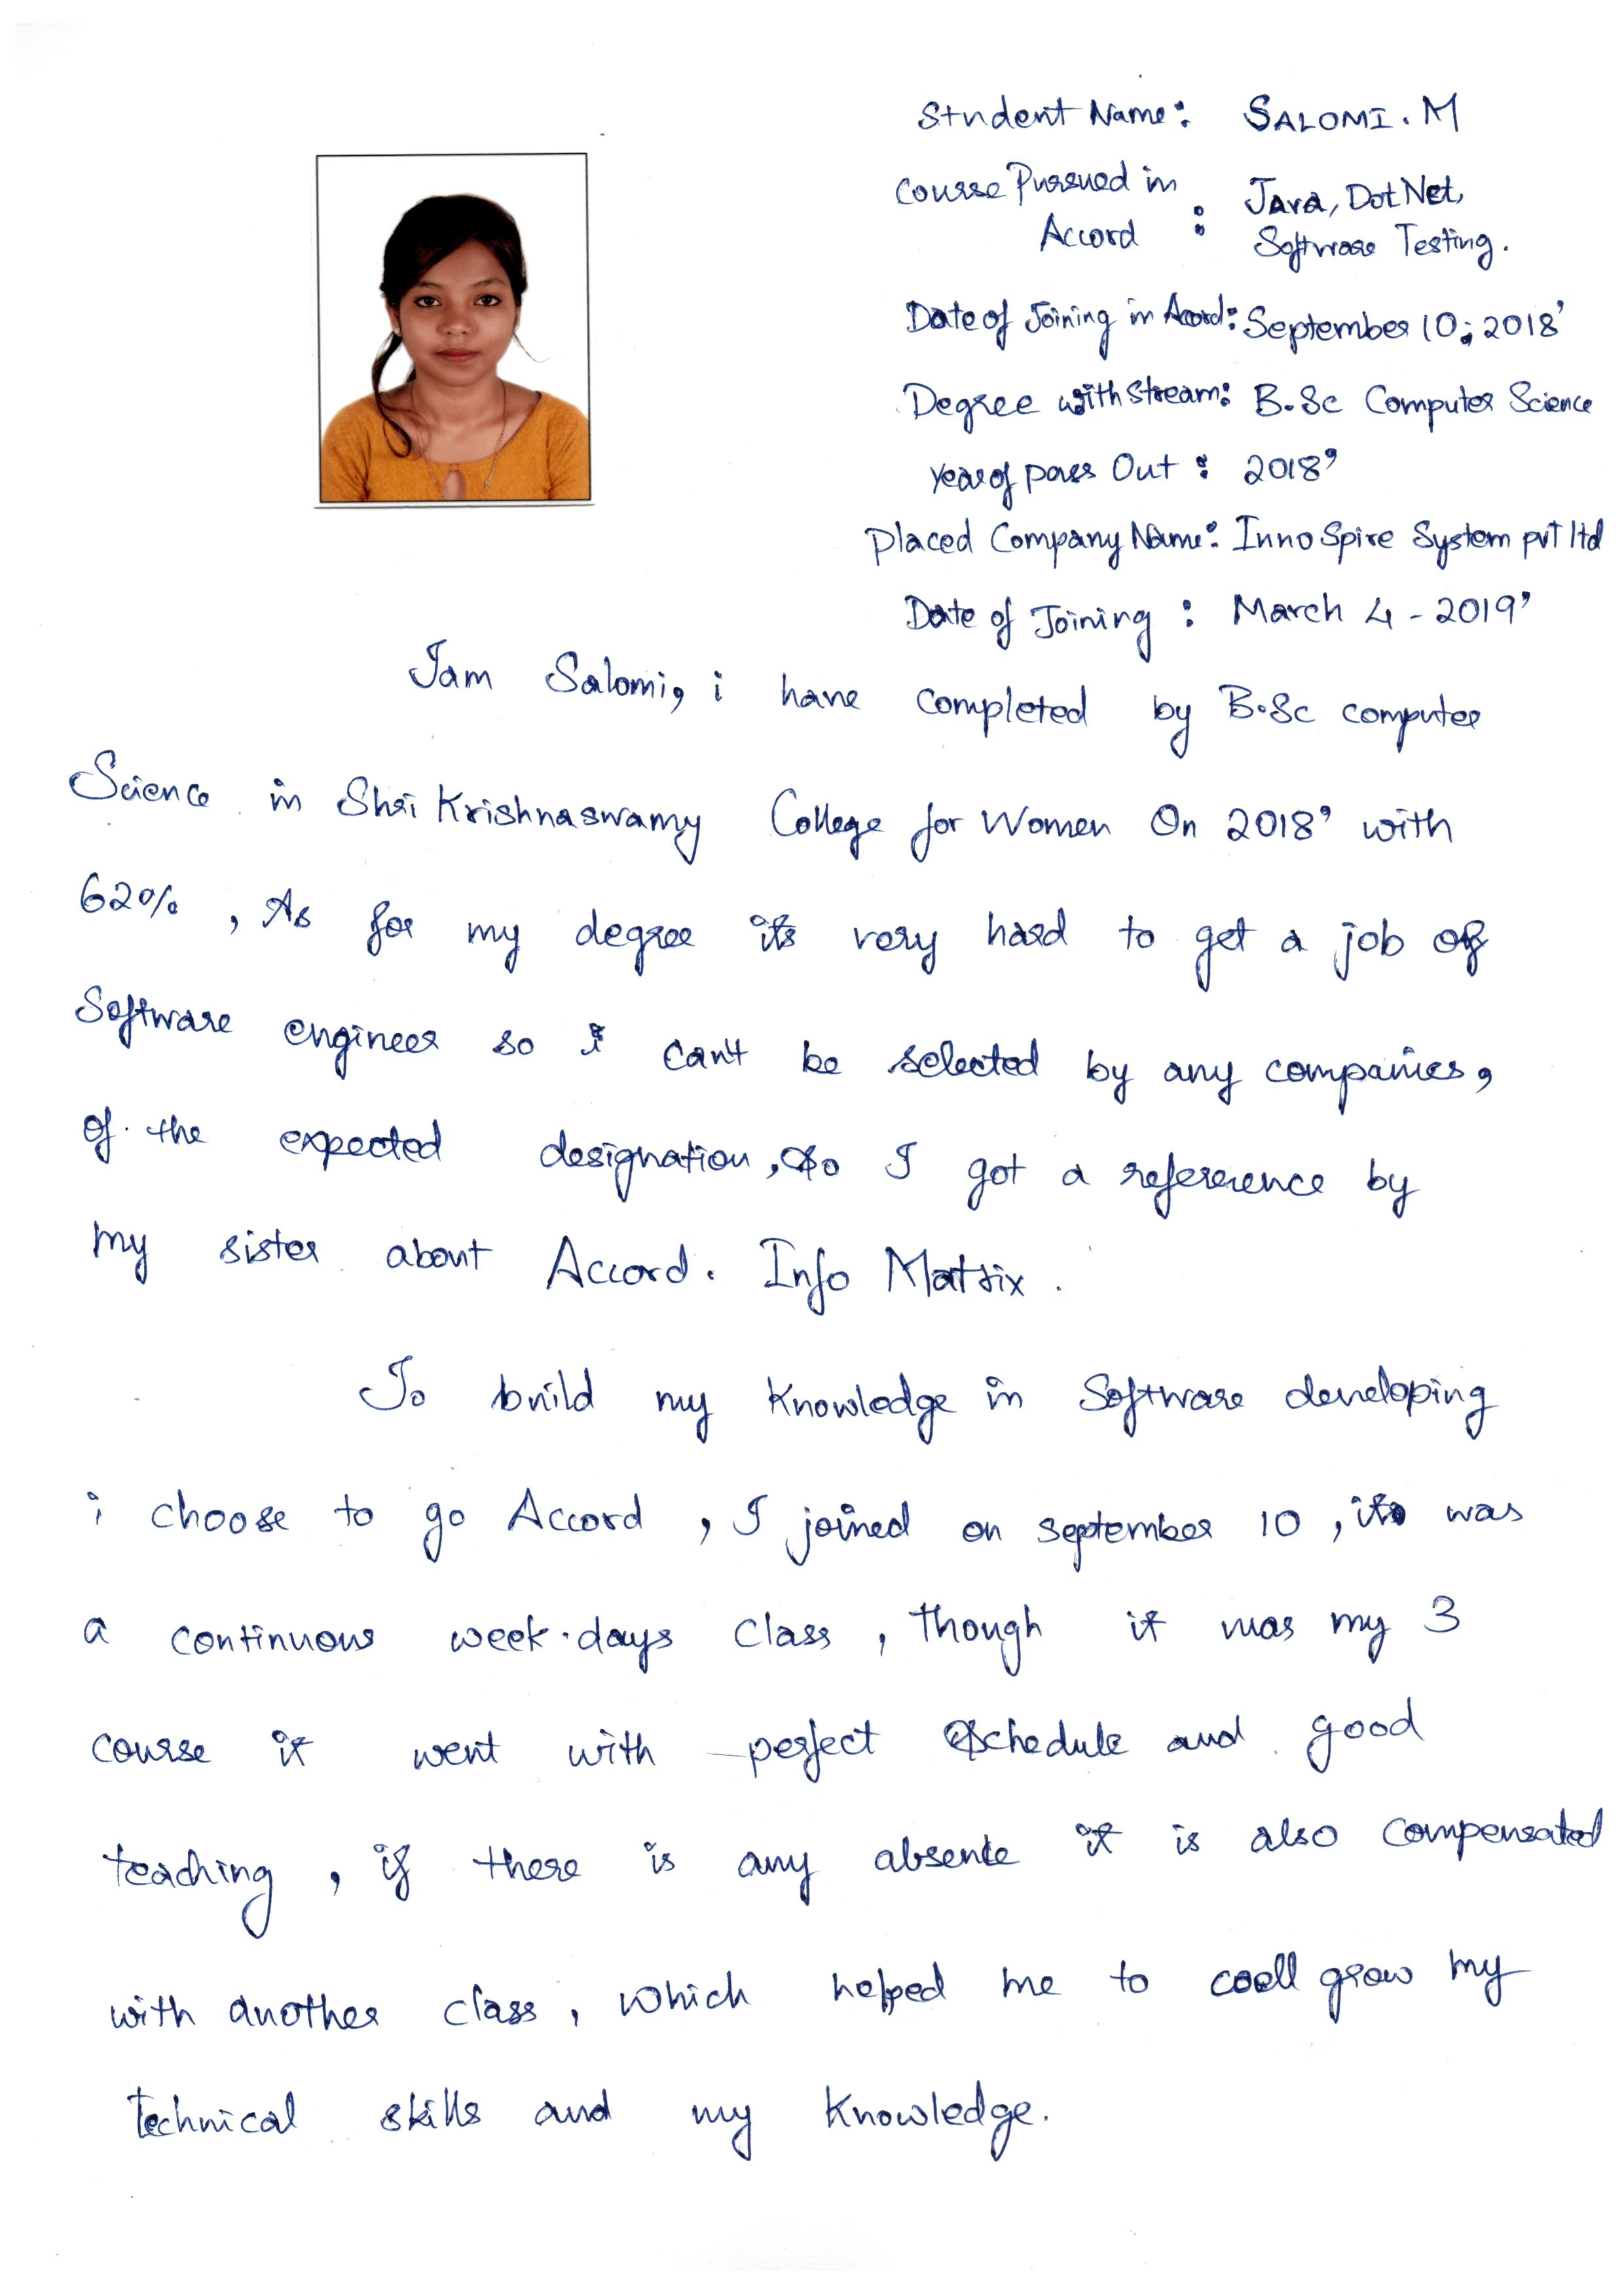 Student Name: SALOMI. M
Course Pursued in : Java, DotNet,
Accord Software Testing.
Date of Joining in Accord: September 10, 2018'
Degree with Stream: B.Sc Computer Science
Year of pass Out : 2018'
Placed Company Name: Inno Spire System pvt ltd
Date of Joining : March 4 - 2019'
I am Salomi, i have completed by B.Sc computer
Science in Shri Krishnaswamy College for Women On 2018' with
62% , As for my degree its very hard to get a job of
Software engineer so i can't be selected by any companies,
of the expected designation, so I got a reference by
my sister about Accord. Info Matrix .
To build my Knowledge in Software developing
i choose to go Accord , I joined on september 10 , it was
a continuous week-days class , though it was my 3
course it went with perfect Schedule and good
teaching , if there is any absence it is also compensated
with another class , which helped me to grow my
technical skills and my Knowledge.